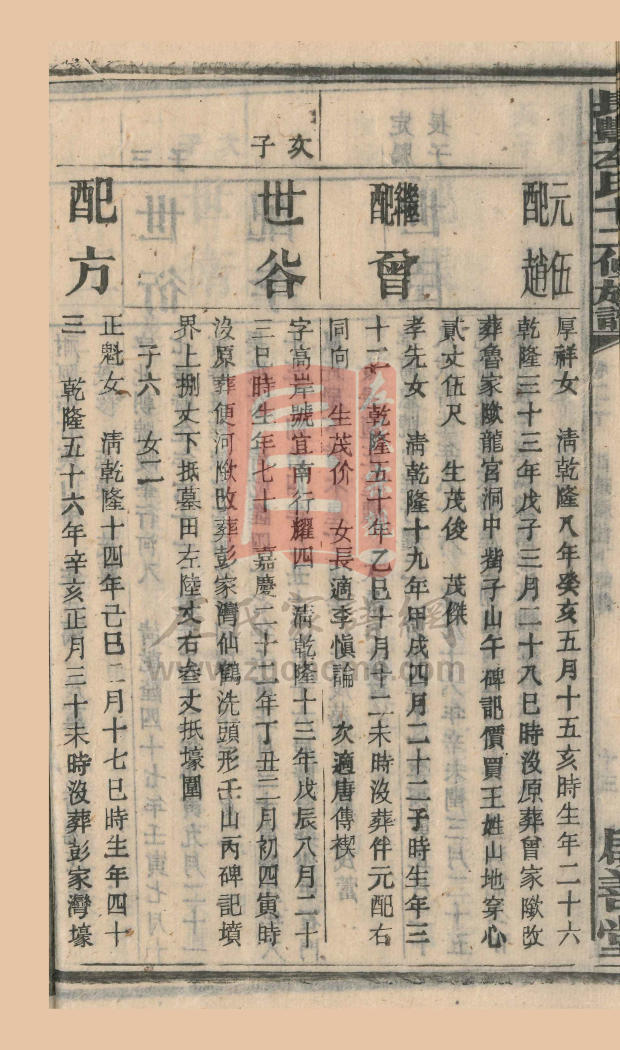 長豐左氏十二修族譜
十三
居善堂
元伍
配趙
厚祥女　清乾隆八年癸亥五月十五亥時生年二十六
乾隆三十三年戊子三月二十八巳時沒原葬曾家隞改
葬魯家隞龍宮洞中嶺子山午碑記價買王姓山地穿心
貳丈伍尺　生茂俊　茂傑
繼
配曾
孝先女　清乾隆十九年甲戌四月二十二子時生年三
十二　乾隆五十年乙巳十月十二未時沒葬伴元配右
同向　生茂价　女長適李愼論　次適唐傳禊
次子
世谷
字高岸號宜南行耀四　清乾隆十三年戊辰八月二十
三巳時生年七十　嘉慶二十二年丁丑二月初四寅時
沒原葬便河隞改葬彭家灣仙鶴洗頭形壬山丙碑記墳
界上捌丈下抵墓田左陸丈右叁丈抵壕圍
子六　女二
配方
正魁女　清乾隆十四年己巳二月十七巳時生年四十
三　乾隆五十六年辛亥正月三十未時沒葬彭家灣壕
左氏家譜網
www.zuohome.com